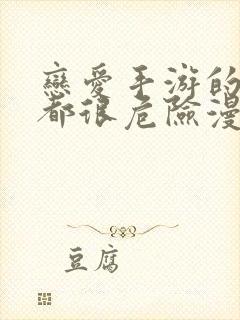 戀愛手游的
都很危險漫
豆腐